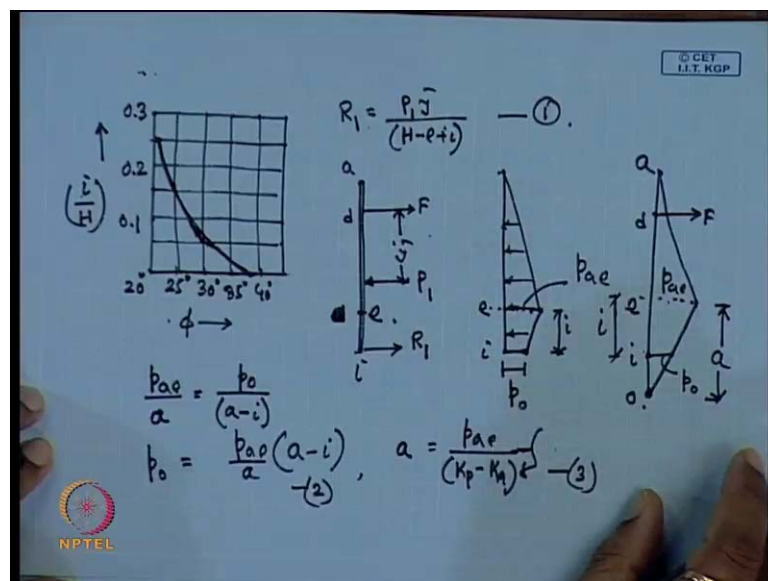 © CET
I.I.T. KGP
0.3
0.2
0.1
(i/H)
20° 25° 30° 35° 40°
φ →
R₁ = P₁ȳ / (H-e+i) — ①.
a
d
F
ȳ
P₁
e.
R₁
i
pae
e
i
i
p₀
a
d
F
pae
e
i
i
p₀
a
o.
pae/a = p₀/(a-i)
p₀ = pae/a (a-i) —(2), a = pae / (Kp-Ka)γ —(3)
NPTEL